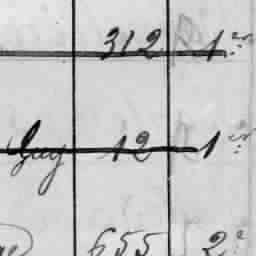 312 1er
Guy 12 1er
655 2e